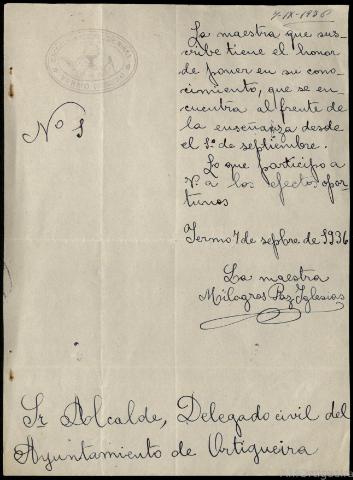 7-IX-1936
Nº 1
La maestra que sus-
cribe tiene el honor
de poner en su cono-
cimiento, que se en-
cuentra al frente de
la enseñanza desde
el 1º de septiembre.
Lo que participo a
V. a los efectos opor-
tunos
Yermo 7 de sepbre de 1936
La maestra
Milagros Paz Iglesias
Sr Alcalde, Delegado civil del
Ayuntamiento de Ortigueira